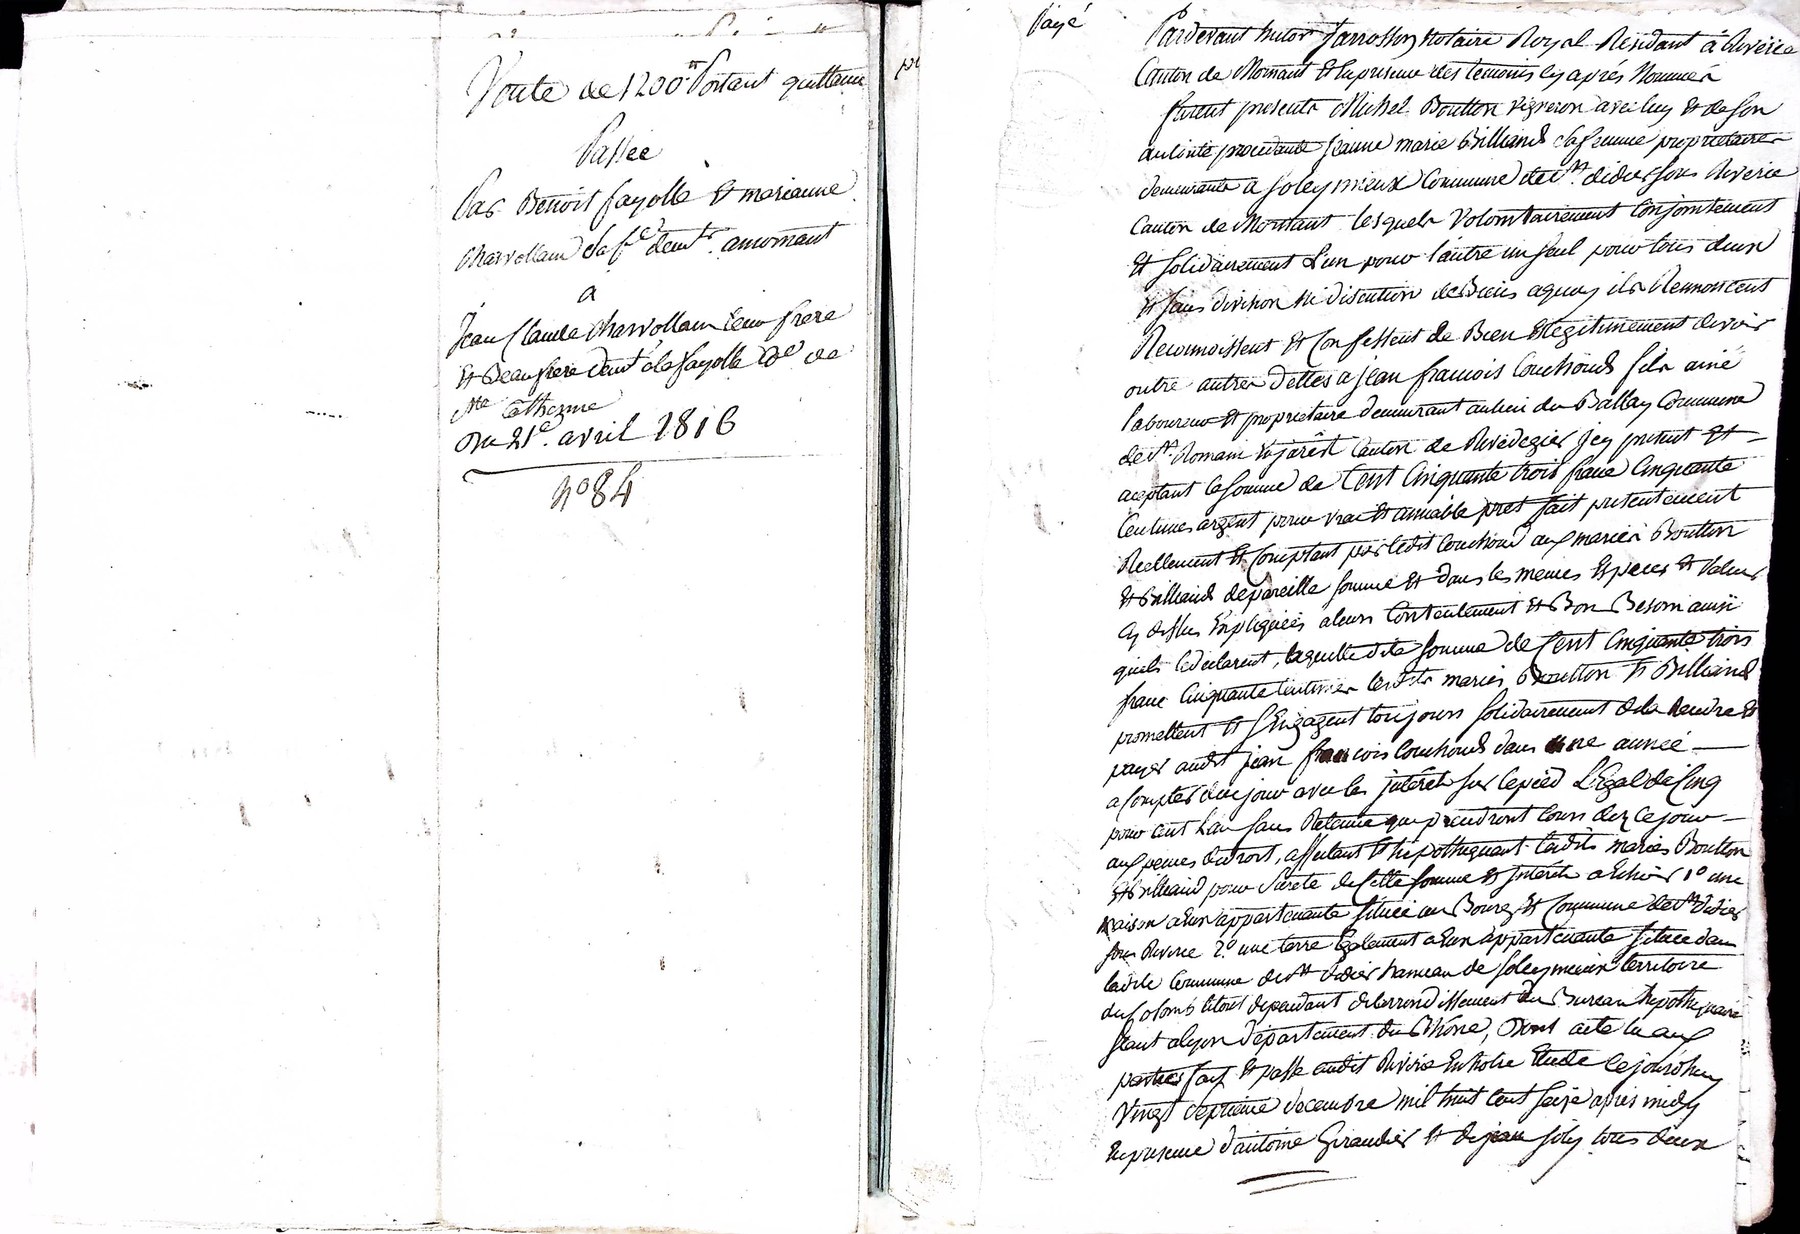 Vente de 1200tt Portant quittance
Passée
Par Benoit fayolle Et marianne
Charvollain Sa fe demt. amornant
a
Jean Claude Charvollain leur frere
Et Beaufrere demt. de fayolle Cne de
Ste Catherine
Du 21e. avril 1816
No 84
Payé
Pardevant Jarrosson Notaire Royal Residant à Riverie
Canton de Mornant Et En presence des temoins cy aprés Nommés
furent presents Michel Boutton vigneron avec luy Et de Son
autorité procedante jeanne marie Billiand Sa femme proprietaires
demeurants a Soleymieux Commune de St. didier Sous Riverie
Canton de Mornant lesquels Volontairement Conjointement
Et Solidairement L'un pour l'autre un Seul pour tous deux
Et Sans division Ni discution de Biens aquoy ils Renoncent
Reconnoissent Et Confessent de Bien Et légitimement devoir
outre autres Dettes a jean francois Couchoud fils ainé
laboureur Et proprietaire demeurant au lieu du Ballay Commune
de St Romain En jarêst Canton de Rivedegier jcy present Et
aceptant la Somme de Cent Cinquante trois franc Cinquante
Centimes argent pour vrai Et amiable pret fait presentement
Reellement Et Comptant par ledit Couchoud aux mariés Boutton
Et Billiand de pareille Somme Et dans les memes Especes Et Valeur
Cy dessus Expliquées a leurs Contentement Et Bon Besoin ainsi
quils le declarent, laquelle dite Somme de Cent Cinquante trois
franc Cinquante Centimes lesdits mariés Boutton Et Billiand
promettent Et S'Engagent toujours Solidairement de la Rendre Et
payer audit jean francois Couchoud dans une année
a Compter de ce jour avec les jnterêts Sur le pied L'Egal de Cinq
pour cent l'an Sans Retenue qui prendront Cours dez ce jour
aux peines de droit, affectant Et hipothequant lesdits mariés Boutton
Et Billiand pour Sureté de Cette Somme Et jnterêts a Echoir 1o une
maison a Eux appartenante Située au Bourg Et Commune de St Didier
Sous Riverie 2o. une terre Egalement a Eux appartenante Située dans
ladite Commune de St Didier hameau de Soleymieux territoire
du Colomb le tout dependant de larrondissement du Bureau hipothequaire
Seant a Lyon Departement du Rhône, Dont acte lu aux
parties fait Et passé audit Riverie En Notre Etude Ce jourdhuy
Vingt Septieme decembre mil huit cent Seize après midy
En presence d'antoine Giraudier Et de jean Joly tous deux